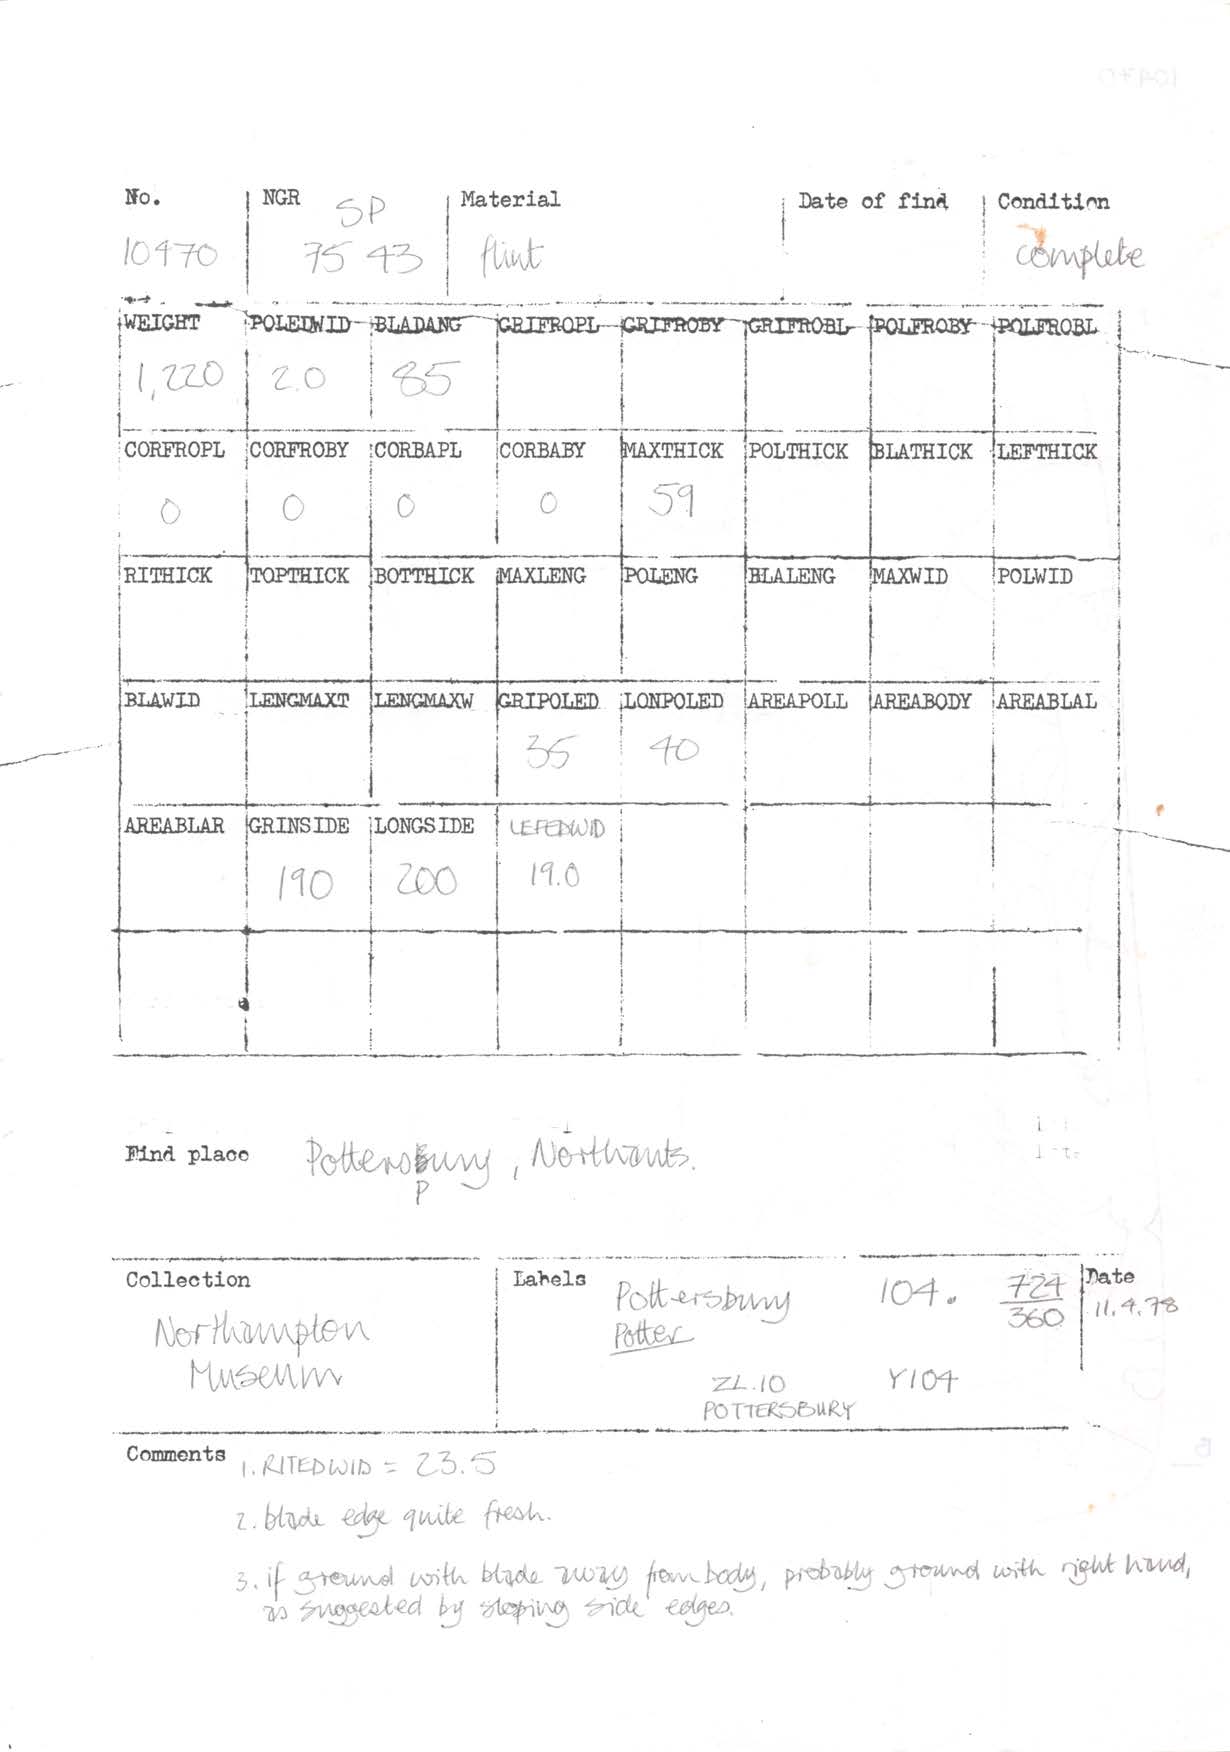 No. NGR SP Material Date of find Condition
10470 75 43 flint complete
WEIGHT POLEDWID BLADANG GRIFROPL GRIFROBY GRIFROBL POLFROBY POLFROBL
1,220 2.0 85
CORFROPL CORFROBY CORBAPL CORBABY MAXTHICK POLTHICK BLATHICK LEFTHICK
0 0 0 0 59
RITHICK TOPTHICK BOTTHICK MAXLENG POLENG BLALENG MAXWID POLWID
BLAWID LENGMAXT LENGMAXW GRIPOLED LONPOLED AREAPOLL AREABODY AREABLAL
35 40
AREABLAR GRINSIDE LONGSIDE LEFEDWID
190 200 19.0
Find place Pottersbury, Northants.
P
Collection Labels Pottersbury 104. 724 Date
360 11.4.78
Northampton Potter
Museum ZL.10 Y104
POTTERSBURY
Comments 1. RITEDWID = 23.5
2. blade edge quite fresh.
3. if ground with blade away from body, probably ground with right hand,
as suggested by sloping side edges.